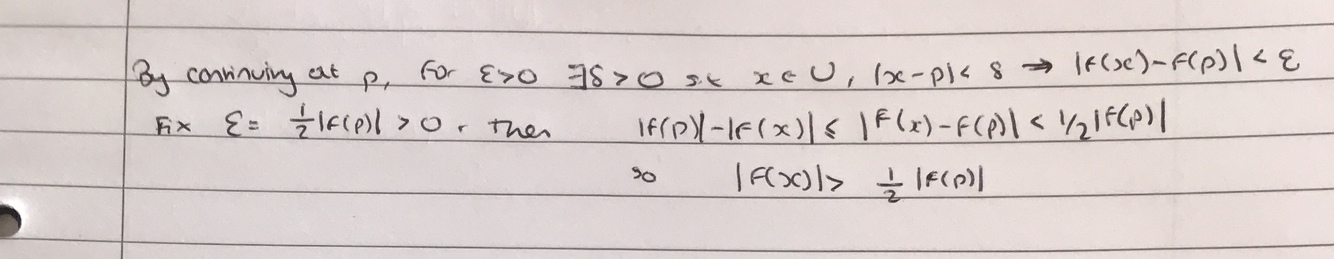 By continuity at p, For ε>0 ∃δ>0 st x∈U, |x-p|<δ ⇒ |f(x)-f(p)|<ε
Fix ε= 1/2|f(p)|>0. then |f(p)|-|f(x)|≤ |f(x)-f(p)|<1/2|f(p)|
so |f(x)|> 1/2 |f(p)|